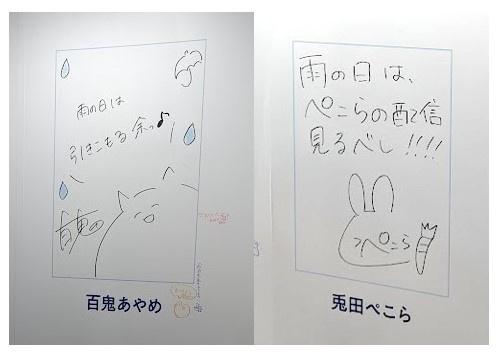 雨の日は
引きこもる余っ♪
百鬼
百鬼あやめ
雨の日は、
ぺこらの配信
見るべし!!!!
ぺこら
兎田ぺこら